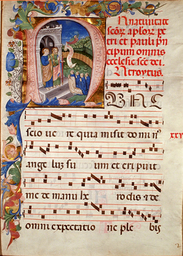 In natiuitate
scõꝝ aplõꝝ pe
tri et pauli pri
cipum omnis
ecclesie scẽ dei
Introytus
NUNC
scio ue re quia misit do minus
ange lum su um et eri puit
me de manu he ro dis et de
omni expectatio ne ple bis